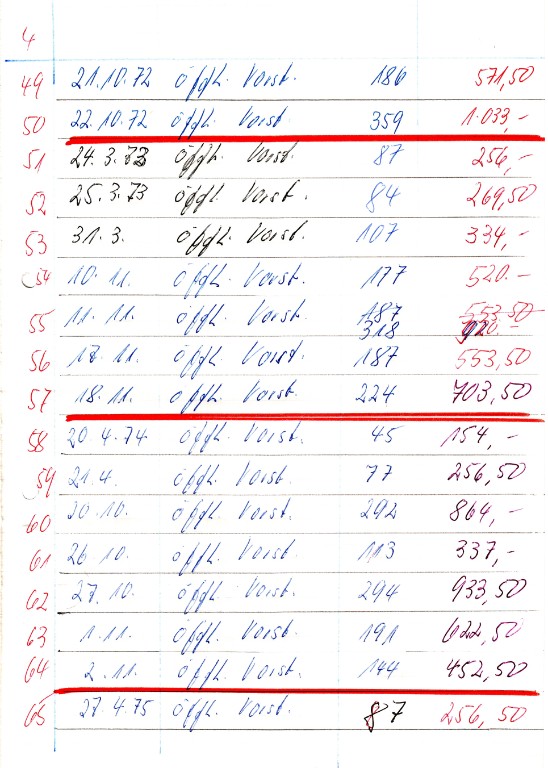 4
49 21.10.72 öfftl. Vorst. 186 571,50
50 22.10.72 öfftl. Vorst 359 1.033,-
51 24.3.73 öfftl. Vorst. 87 256,-
52 25.3.73 öfftl. Vorst. 84 269,50
53 31.3. öfftl. Vorst. 107 334,-
54 10.11. öfftl. Vorst. 177 520.-
55 11.11. öfftl. Vorst. 187 553,50
318 920.-
56 17.11. öfftl. Vorst. 187 553,50
57 18.11. öfftl. Vorst. 224 703,50
58 20.4.74. öfftl. Vorst. 45 154,-
59 21.4. öfftl. Vorst. 77 256,50
60 20.10. öfftl. Vorst. 292 864,-
61 26.10. öfftl. Vorst. 113 337,-
62 27.10. öfftl. Vorst. 294 933,50
63 1.11. öfftl. Vorst. 191 622,50
64 2.11. öfftl. Vorst. 144 452,50
65 27.4.75 öfftl. Vorst. 87 256,50